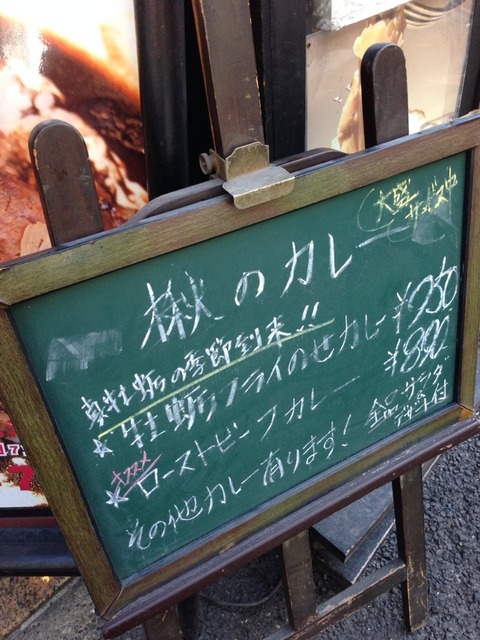 大盛
サービス中
楸のカレー
真牡蛎の季節到来!!
☆牡蛎フライのせカレー ¥950
オススメ
☆ローストビーフカレー ¥890
その他カレーあります!
全品サラダ
味噌汁付